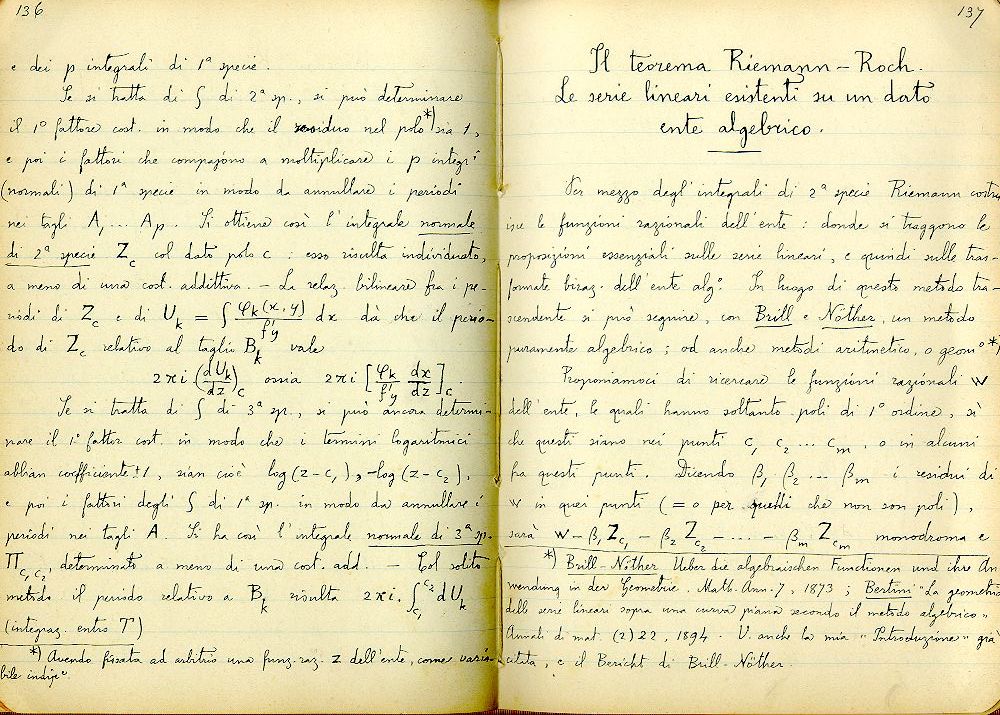 136
e dei p integrali di 1ª specie.
Se si tratta di ∫ di 2ª sp., si può determinare
il 1º fattore cost. in modo che il residuo nel polo*) sia 1,
e poi i fattori che compajono a moltiplicare i p integrⁱ
(normali) di 1ª specie in modo da annullare i periodi
nei tagli A₁ ... Aₚ. Si ottiene così l'integrale normale
di 2ª specie Z_c col dato polo c : esso risulta individuato,
a meno di una cost. addittiva. – La relaz. bilineare fra i pe-
riodi di Z_c e di U_k = ∫ φ_k(x,y)/f'y dx dà che il perio-
do di Z_c relativo al taglio B_k vale
2πi (dU_k/dz)_c ossia 2πi [φ_k/f'y dx/dz]_c .
Se si tratta di ∫ di 3ª sp., si può ancora determi-
nare il 1º fattor cost. in modo che i termini logaritmici
abbian coefficiente ±1, sian cioè log(z-c₁), -log(z-c₂),
e poi i fattori degli ∫ di 1ª sp. in modo da annullare i
periodi nei tagli A. Si ha così l'integrale normale di 3ª sp.
Π_c₁c₂, determinato a meno di una cost. add. – Col solito
metodo il periodo relativo a B_k risulta 2πi. ∫_c₁^c₂ dU_k
(integraz. entro T')
*) Avendo fissata ad arbitrio una funz. raz. z dell'ente, come varia-
bile indipᵉ
137
Il teorema Riemann – Roch.
Le serie lineari esistenti su un dato
ente algebrico.
Per mezzo degl'integrali di 2ª specie Riemann costru
isce le funzioni razionali dell'ente : donde si traggono le
proposizioni essenziali sulle serie lineari, e quindi sulle tras-
formate biraz. dell'ente algº. In luogo di questo metodo tra-
scendente si può seguire, con Brill e Nöther, un metodo
puramente algebrico ; od anche metodi aritmetico, o geomº*)
Proponiamoci di ricercare le funzioni razionali w
dell'ente, le quali hanno soltanto poli di 1º ordine, sì
che questi siano nei punti c₁ c₂ ... c_m, o in alcuni
fra questi punti. Dicendo β₁ β₂ ... β_m i residui di
w in quei punti (= 0 per quelli che non son poli),
sarà w - β₁ Z_c₁ - β₂ Z_c₂ - .... - β_m Z_c_m monodroma e
*) Brill-Nöther Ueber die algebraischen Functionen und ihre An
wendung in der Geometrie. Math. Ann. 7, 1873 ; Bertini "La geometria
delle serie lineari sopra una curva piana secondo il metodo algebrico"
Annali di mat. (2) 22, 1894. V. anche la mia "Introduzione" già
citata, e il Bericht di Brill-Nöther.